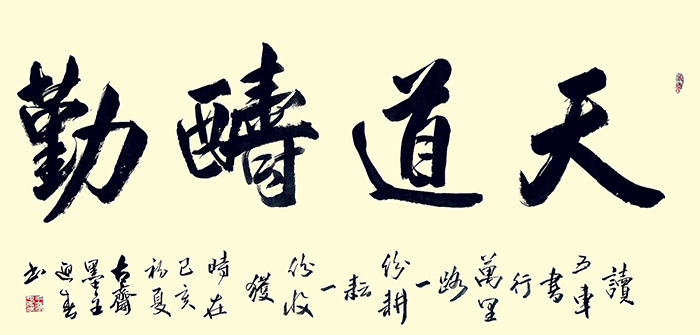 天道醻勤
讀五車書行萬里路一份耕耘一份收獲時在己亥初夏古齋墨主迎春书